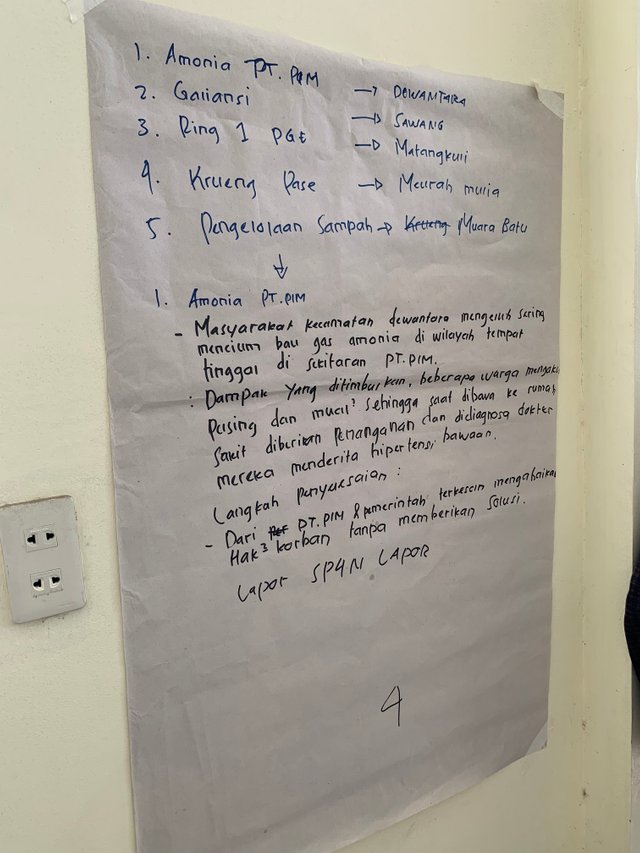 1. Amonia PT. PIM → DEWANTARA
2. Galiansi → SAWANG
3. Ring 1 PGE → Matangkuli
4. Krueng Pase → Meurah mulia
5. Pengelolaan Sampah → Krueng Muara Batu
↓
1. Amonia PT. PIM
- Masyarakat kecamatan dewantara mengeluh sering
mencium bau gas amonia di wilayah tempat
tinggal di sekitaran PT. PIM.
: Dampak yang ditimbulkan, beberapa warga mengaku
pusing dan mual² sehingga saat dibawa ke rumah
sakit diberikan penanganan dan didiagnosa dokter
mereka menderita hipertensi bawaan.
Langkah penyelesaian :
- Dari PT. PIM & pemerintah terkesan mengabaikan
Hak² korban tanpa memberikan solusi.
Lapor SP4N LAPOR
4